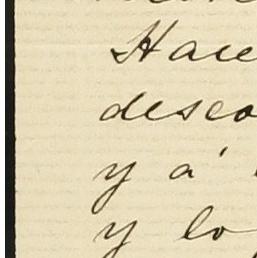 Hace
deseo
y á
y lo